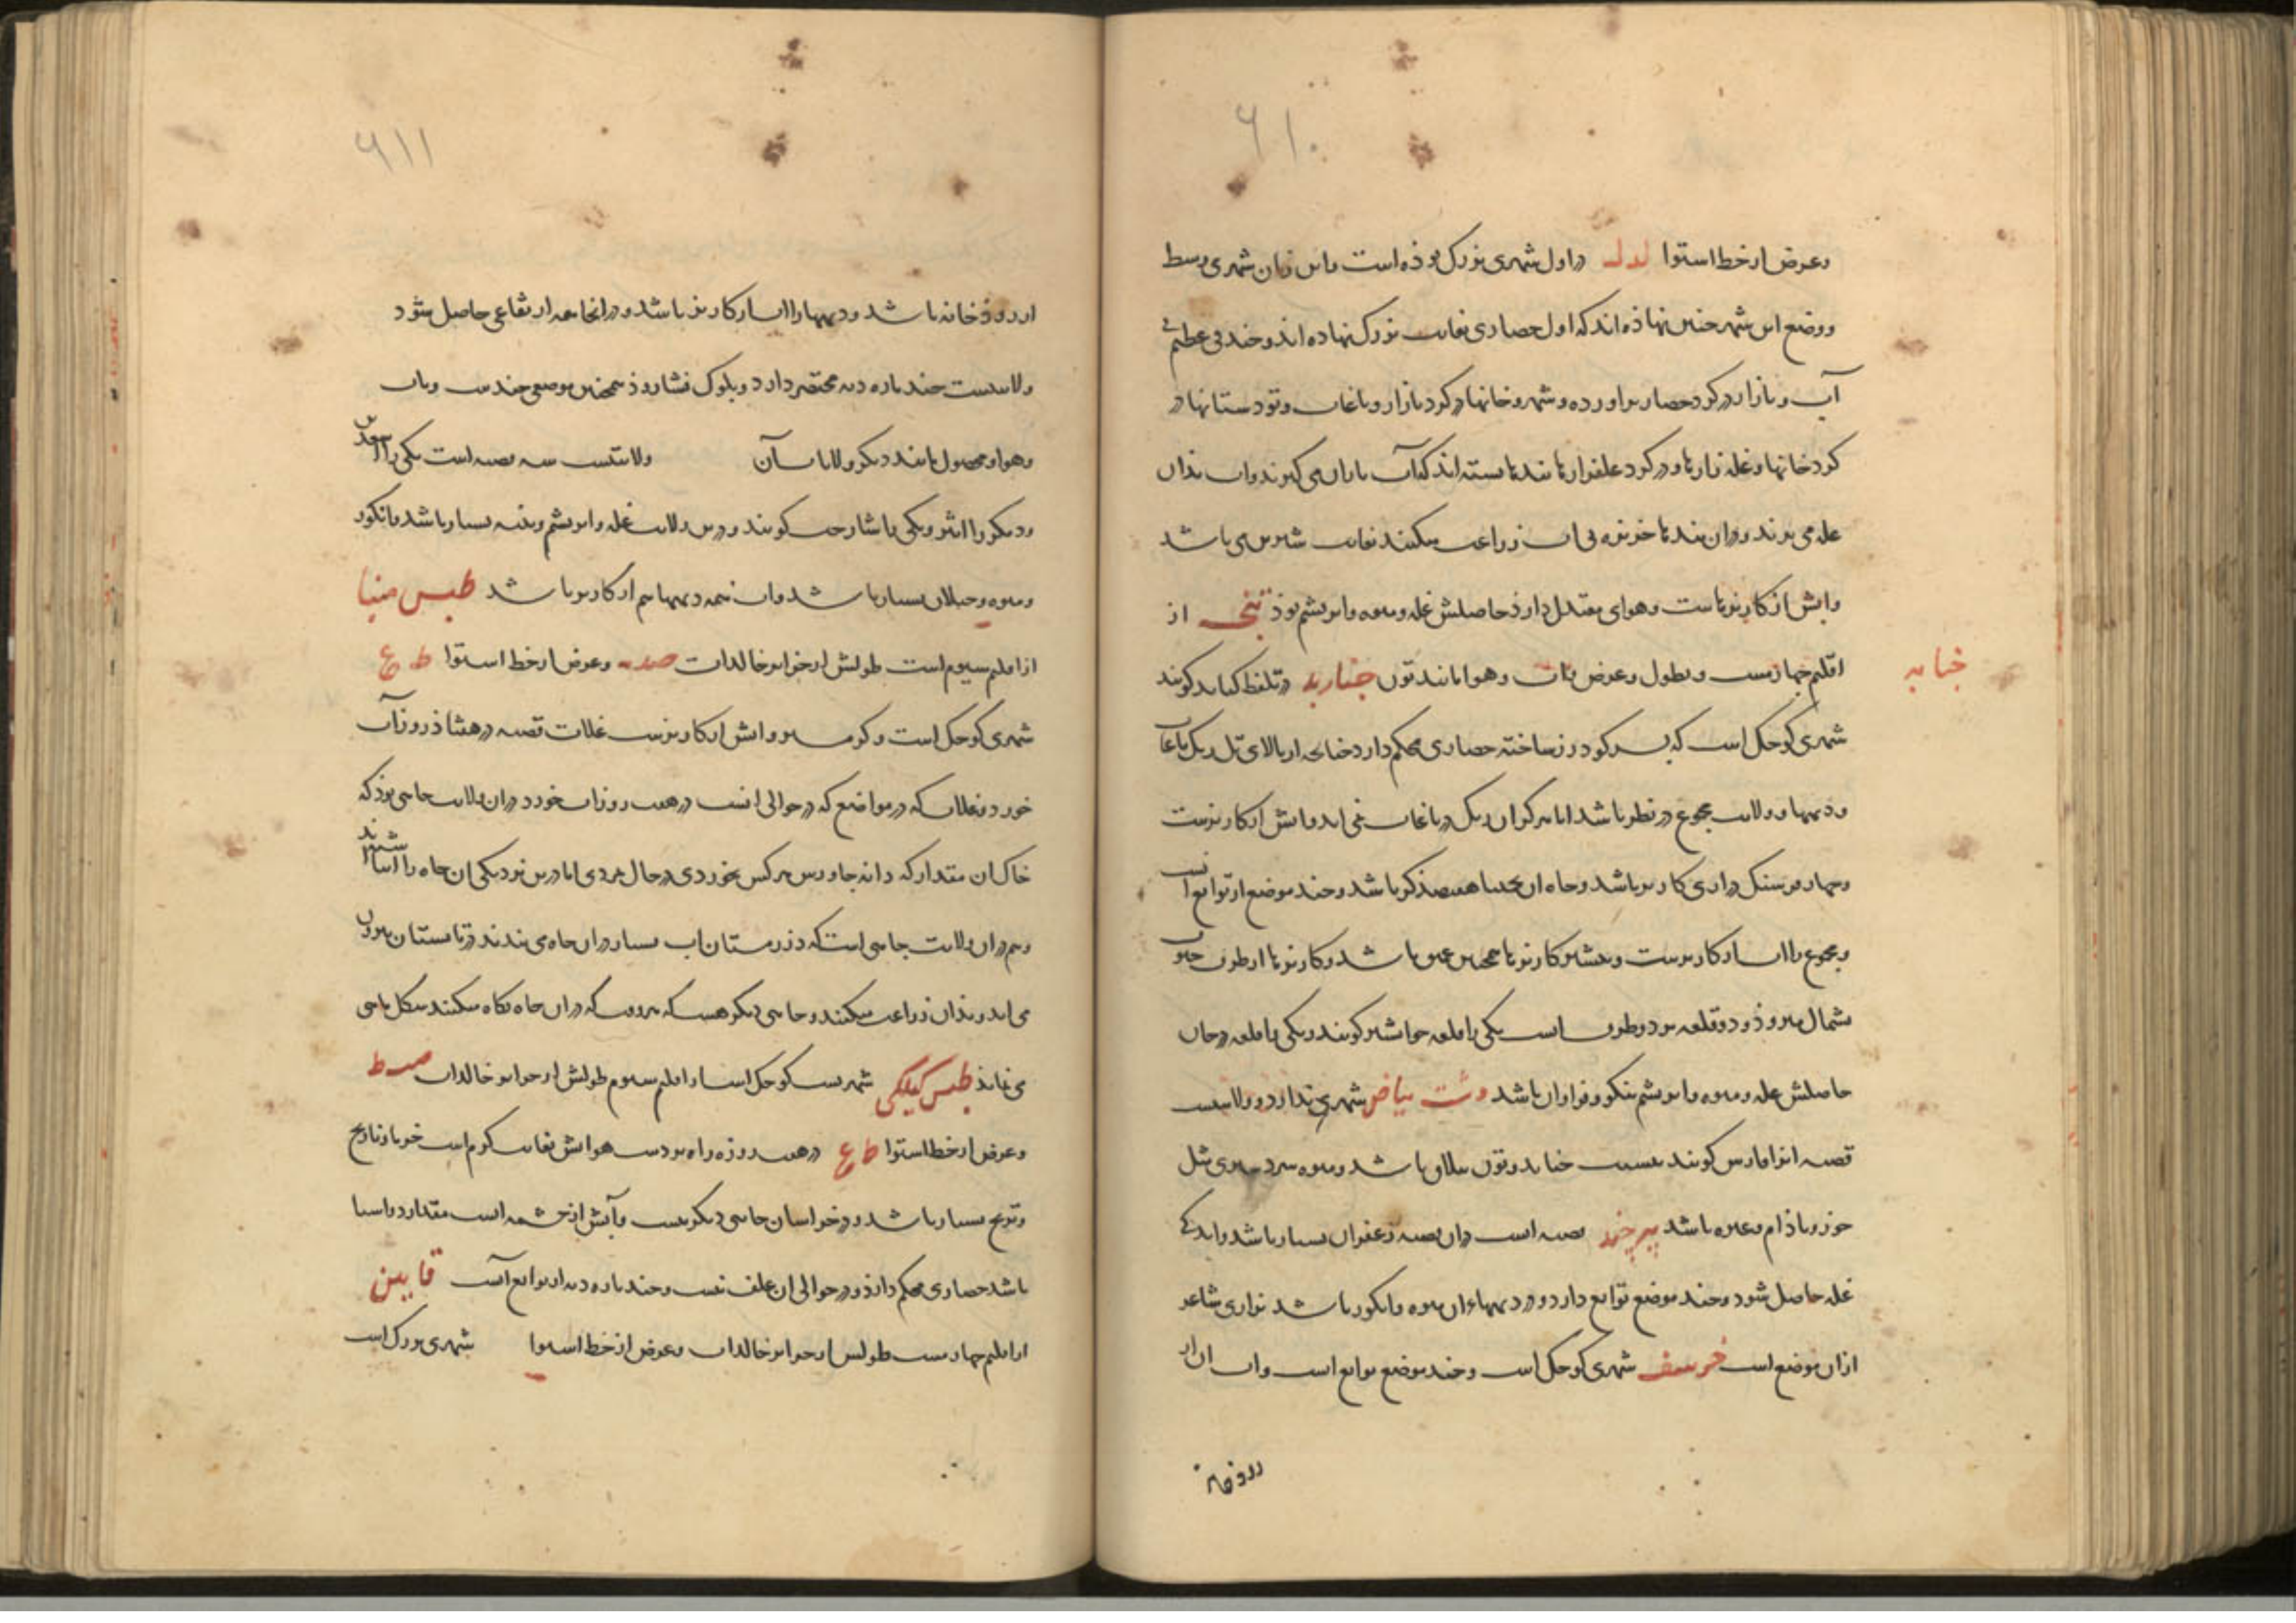 ۶۱۰
وعرض از خط استوا لدل در اول شهری بزرک بوذه است واین زمان شهری وسط
ووضع این شهر چنین نهاذه اند که اول حصاری بغایت بزرک نهاده اند وخندقی عظیم بی
آب و بازار در کرد حصار براورده و شهر و خانها در کرد بازار و باغات و تودستانها در
کرد خانها وغله زارها و در کرد غله زارها بندها بسته اند که آب باران می کیرند واب بذان
غله می برند و دران بندها خربزه بی اب زراعت میکنند بغایت شیرین می باشد
وابش از کاریزهاست وهوای معتدل دارذ حاصلش غله ومیوه وابریشم بوذ از
اقلیم چهارمست و بطول وعرض و هوا مانند تون جنابد در تلفظ کنابد کویند
شهری کوچک است که پسر کودرز ساخته حصاری محکم دارد چنانچه از بالای تل ریک باغات
ودیهها و ولایت مجموع در نظر باشد اما هرکز ان ریک در باغات نمی اید وابش از کاریزست
وچهار فرسنک درازی کاریز باشد وچاه ان بحد هفصد کز باشد وچند موضع از توابع انست
ومجموع را اب از کاریزست وبیشتر کاریزها همچنین عمیق باشد وکاریزها از طرف جنوب
بشمال میروذ و دو قلعه بر دو طرف است یکی را قلعه خواشیر کویند ویکی را قلعه درجان
حاصلش غله ومیوه وابریشم نیکو و فراوان باشد دشت بیاض شهری ندارد و ولایتست
قصبه انرا فارس کویند جنابد وتون باشد ومیوه سردسیری مثل
جوز وباذام وغیره باشد بیرجند قصبه است دران قصبه زعفران بسیار باشد واندکی
غله حاصل شود وچند موضع توابع دارد و در دیهها ان میوه وانکور باشد نزاری شاعر
ازان موضع است خوسف شهری کوچک است وچند موضع توابع است واب ان از
رودخانه
جنابد
۶۱۱
از روذخانه باشد ودیهها را اب از کاریز باشد و در انجا همه ارتفاعی حاصل شود
ولایتست چند پاره دیه مختصر دارد وبلوک فشاروذ همچنین موضعی چندست وباب
وهوا ومحصول مانند دیکر ولایات آن ولایتست سه قصبه است یکی را
ودیکر را اثر ویکی را شارخت کویند و درین ولایت غله وابریشم وپنبه بسیار باشد وانکور
ومیوه بسیار باشد واب همه دیهها هم از کاریز باشد طبس مینا
از اقلیم سیوم است طولش از جزایر خالدات صدیه وعرض از خط استوا
شهری کوچک است و کرمسیر وابش از کاریزست غلات قصبه در هشتاذ روز آب
خورد وغلات که در مواضع که در حوالی انست در هفتاد روز اب خورد دران ولایت چاهی بوذ که
خاک ان مقدار که دانه جاورس هرکس بخوردی در حال بمردی اما درین نزدیکی ان چاه را انباشتند
وهم دران ولایت چاهی است که در زمستان اب بسیار دران چاه می بندند در تابستان بیرون
می اید وبذان زراعت میکنند وچاهی دیکر هست که هر وقت که دران چاه نکاه میکنند بشکل ماهی
می نماید طبس کیلکی شهریست کوچک است از اقلیم سیوم طولش از جزایر خالدات
وعرض از خط استوا روزه راه یزدست هوایش بغایت کرم است خرما ونارنج
وترنج بسیار باشد و در خراسان جای دیکر نیست وآبش از چشمه است مقدار دو اسیا
باشد حصاری محکم دارذ و در حوالی ان علف نیست وچند پاره دیه از توابع آنست قاین
از اقلیم چهارمست طولش از جزایر خالدات وعرض از خط استوا شهری بزرک است